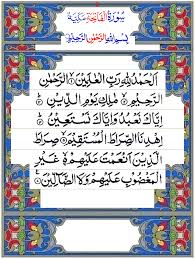 سُوْرَةُ الْفَاتِحَةِ مَكِّيَّةٌ
بِسْمِ اللهِ الرَّحْمٰنِ الرَّحِيْمِ
اَلْحَمْدُ لِلّٰهِ رَبِّ الْعٰلَمِيْنَ ۙ الرَّحْمٰنِ
الرَّحِيْمِ ۙ مٰلِكِ يَوْمِ الدِّيْنِ ۗ
اِيَّاكَ نَعْبُدُ وَاِيَّاكَ نَسْتَعِيْنُ ۗ
اِهْدِنَا الصِّرَاطَ الْمُسْتَقِيْمَ ۙ صِرَاطَ
الَّذِيْنَ اَنْعَمْتَ عَلَيْهِمْ ۙ غَيْرِ
الْمَغْضُوْبِ عَلَيْهِمْ وَلَا الضَّآلِّيْنَ